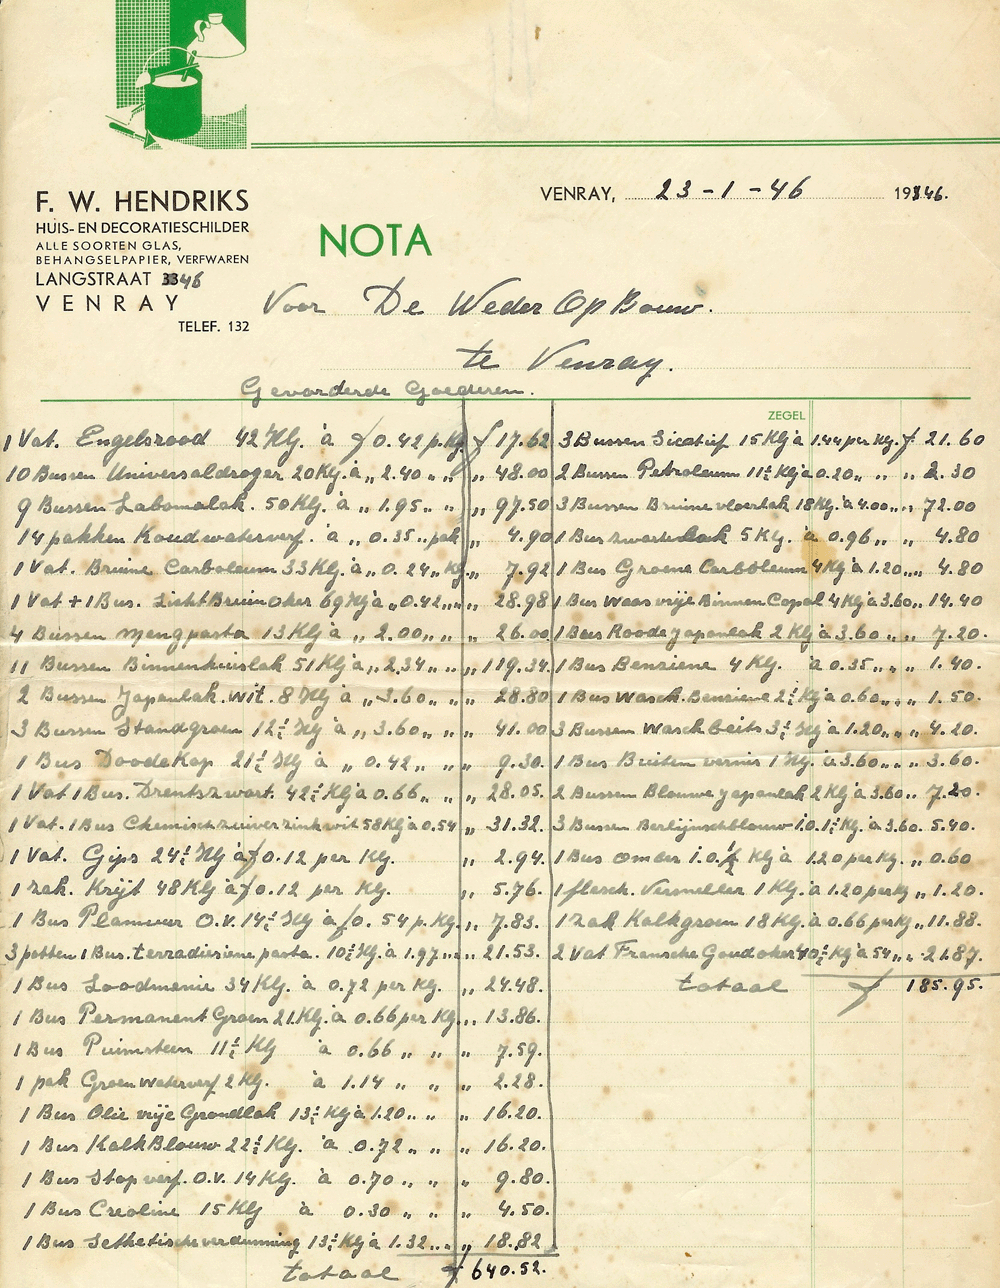 F. W. HENDRIKS
HUIS- EN DECORATIESCHILDER
ALLE SOORTEN GLAS,
BEHANGSELPAPIER, VERFWAREN
LANGSTRAAT 3346
VENRAY
TELEF. 132
VENRAY, 23-1-46 1946.
NOTA
Voor De Weder Op Bouw.
te Venray.
Gevorderde Goederen.
ZEGEL
1 Vat. Engelsrood 42 Klg. à ƒ 0.42 p. Klg. ƒ 17.62
10 Bussen Universaldroger 20 Klg. à „ 2.40 „ „ „ 48.00
9 Bussen Labomalak. 50 Klg. à „ 1.95 „ „ „ 97.50
14 pakken Koudwaterverf. à „ 0.35 „ pak „ 4.90
1 Vat. Bruine Carboleum 33 Klg à „ 0.24 „ Klg „ 7.92
1 Vat + 1 Bus. Licht Bruin oker 69 Klg à „ 0.42 „ „ „ 28.98
4 Bussen mengpasta 13 Klg à „ 2.00 „ „ „ 26.00
11 Bussen Binnenhuislak 51 Klg à „ 2.34 „ „ „ 119.34
2 Bussen Japanlak. wit. 8 Klg à „ 3.60 „ „ „ 28.80
3 Bussen Standgroen 12½ Klg à „ 3.60 „ „ „ 41.00
1 Bus Doodekop 21½ Klg à „ 0.42 „ „ „ 9.30
1 Vat 1 Bus. Drentszwart. 42½ Klg à 0.66 „ „ „ 28.05.
1 Vat. 1 Bus Chemisch zuiver zinkwit 58 Klg à 0.54 „ 31.32.
1 Vat. Gips 24½ Klg à ƒ 0.12 per Klg. „ 2.94.
1 zak. Krijt 48 Klg à ƒ 0.12 per Klg. „ 5.76.
1 Bus Plamuur O.V. 14½ Klg à ƒ 0.54 p. Klg. „ 7.83.
3 potten 1 Bus. terradisiene pasta. 10½ Klg à 1.97 „ „ „ 21.53.
1 Bus Loodmenie 34 Klg. à 0.72 per Klg. „ 24.48.
1 Bus Permanent Groen 21 Klg. à 0.66 per Klg. „ 13.86.
1 Bus Puimsteen 11½ Klg à 0.66 „ „ „ 7.59.
1 pak Groen waterverf 2 Klg. à 1.14 „ „ „ 2.28.
1 Bus Olie vrije Grondlak 13½ Klg à 1.20 „ „ „ 16.20.
1 Bus KalkBlouw 22½ Klg. à 0.72 „ „ „ 16.20.
1 Bus Stopverf. O.V. 14 Klg. à 0.70 „ „ „ 9.80.
1 Bus Creoline 15 Klg à 0.30 „ „ „ 4.50.
1 Bus Sethetische verdunning 13½ Klg à 1.32 „ „ 18.82
totaal ƒ 640.52.
3 Bussen Sicatief 15 Klg à 1.44 per Klg. ƒ 21.60
2 Bussen Petroleum 11½ Klg à 0.20 „ „ „ 2.30
3 Bussen Bruine vloerlak 18 Klg. à 4.00 „ „ „ 72.00
1 Bus zwartelak 5 Kg. à 0.96 „ „ 4.80
1 Bus Groene Carboleum 4 Klg à 1.20 „ „ 4.80
1 Bus Waas vrije Binnen Copal 4 Klg à 3.60 „ „ 14.40
1 Bus Roode Japanlak 2 Klg à 3.60 „ „ 7.20.
1 Bus Benziene 4 Klg. à 0.35 „ „ „ 1.40.
1 Bus Wasch. Benziene 2½ Klg à 0.60 „ „ 1.50.
3 Bussen Waschbeits 3½ Klg à 1.20 „ „ „ 4.20.
1 Bus Buiten vernis 1 Klg. à 3.60 „ „ „ 3.60.
2 Bussen Blouwe Japanlak 2 Klg à 3.60 „ „ 7.20.
3 Bussen Berlijnschblouw i.o. 1½ Klg. à 3.60. 5.40.
1 Bus omber i.o. ½ Klg à 1.20 per Kg. „ 0.60
1 flesch. Vermeller 1 Klg. à 1.20 per kg „ 1.20.
1 zak Kalkgroen 18 Klg. à 0.66 per Kg „ 11.88.
2 Vat Fransche Goudoker 40½ Klg à 54 „ „ 21.87.
totaal ƒ 185.95.